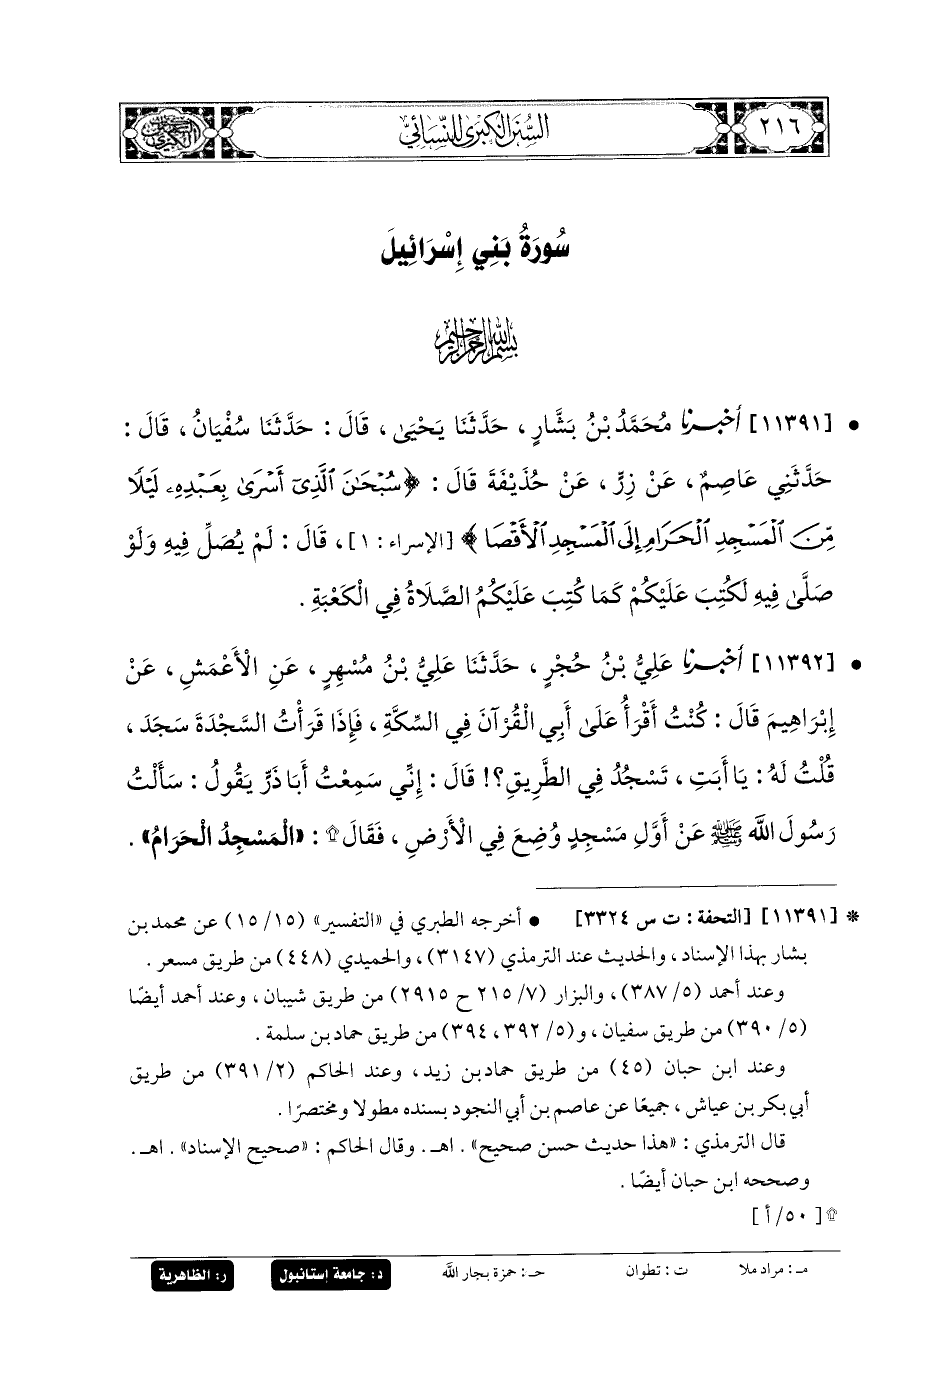 ٢١٦
السُّنَنُ الْكُبْرَى لِلنَّسَائِيِّ
سُورَةُ بَنِي إِسْرَائِيلَ
بسم الله الرحمن الرحيم
• [١١٣٩١] أَخْبَرَنَا مُحَمَّدُ بْنُ بَشَّارٍ ، حَدَّثَنَا يَحْيَىٰ ، قَالَ : حَدَّثَنَا سُفْيَانُ ، قَالَ :
حَدَّثَنِي عَاصِمٌ ، عَنْ زِرٍّ ، عَنْ حُذَيْفَةَ قَالَ : ﴿سُبْحَٰنَ ٱلَّذِىٓ أَسْرَىٰ بِعَبْدِهِۦ لَيْلًا
مِّنَ ٱلْمَسْجِدِ ٱلْحَرَامِ إِلَى ٱلْمَسْجِدِ ٱلْأَقْصَا ﴾ [الإسراء : ١] ، قَالَ : لَمْ يُصَلِّ فِيهِ وَلَوْ
صَلَّىٰ فِيهِ لَكُتِبَ عَلَيْكُمْ كَمَا كُتِبَ عَلَيْكُمُ الصَّلَاةُ فِي الْكَعْبَةِ .
• [١١٣٩٢] أَخْبَرَنَا عَلِيُّ بْنُ حُجْرٍ ، حَدَّثَنَا عَلِيُّ بْنُ مُسْهِرٍ ، عَنِ الْأَعْمَشِ ، عَنْ
إِبْرَاهِيمَ قَالَ : كُنْتُ أَقْرَأُ عَلَىٰ أَبِي الْقُرْآنَ فِي السِّكَّةِ ، فَإِذَا قَرَأْتُ السَّجْدَةَ سَجَدَ ،
قُلْتُ لَهُ : يَا أَبَتِ ، تَسْجُدُ فِي الطَّرِيقِ؟! قَالَ : إِنِّي سَمِعْتُ أَبَا ذَرٍّ يَقُولُ : سَأَلْتُ
رَسُولَ اللَّه ﷺ عَنْ أَوَّلِ مَسْجِدٍ وُضِعَ فِي الْأَرْضِ ، فَقَالَ۩ : «الْمَسْجِدُ الْحَرَامُ» .
* [١١٣٩١] [التحفة : ت س ٣٣٢٤] • أخرجه الطبري في «التفسير» (١٥/١٥) عن محمد بن
بشار بهذا الإسناد ، والحديث عند الترمذي (٣١٤٧) ، والحميدي (٤٤٨) من طريق مسعر .
وعند أحمد (٥/ ٣٨٧) ، والبزار (٧/ ٢١٥ ح ٢٩١٥) من طريق شيبان ، وعند أحمد أيضًا
(٥/ ٣٩٠) من طريق سفيان ، و(٥/ ٣٩٢، ٣٩٤) من طريق حماد بن سلمة .
وعند ابن حبان (٤٥) من طريق حماد بن زيد ، وعند الحاكم (٢/ ٣٩١) من طريق
أبي بكر بن عياش ، جميعًا عن عاصم بن أبي النجود بسنده مطولا ومختصرًا .
قال الترمذي : «هذا حديث حسن صحيح» . اهـ . وقال الحاكم : «صحيح الإسناد» . اهـ .
وصححه ابن حبان أيضًا .
۩ [٥٠/ أ]
مـ : مراد ملا ت : تطوان حـ : حمزة بجار الله د : جامعة إستانبول ر : الظاهرية